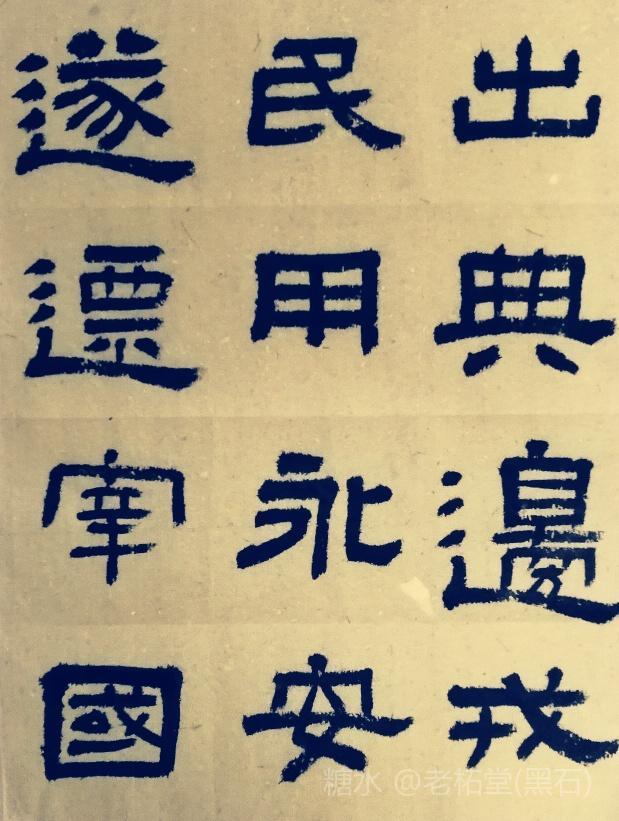 出典邊戎
民用永安
遂遷宰國
糖水 @老柘堂(黑石)